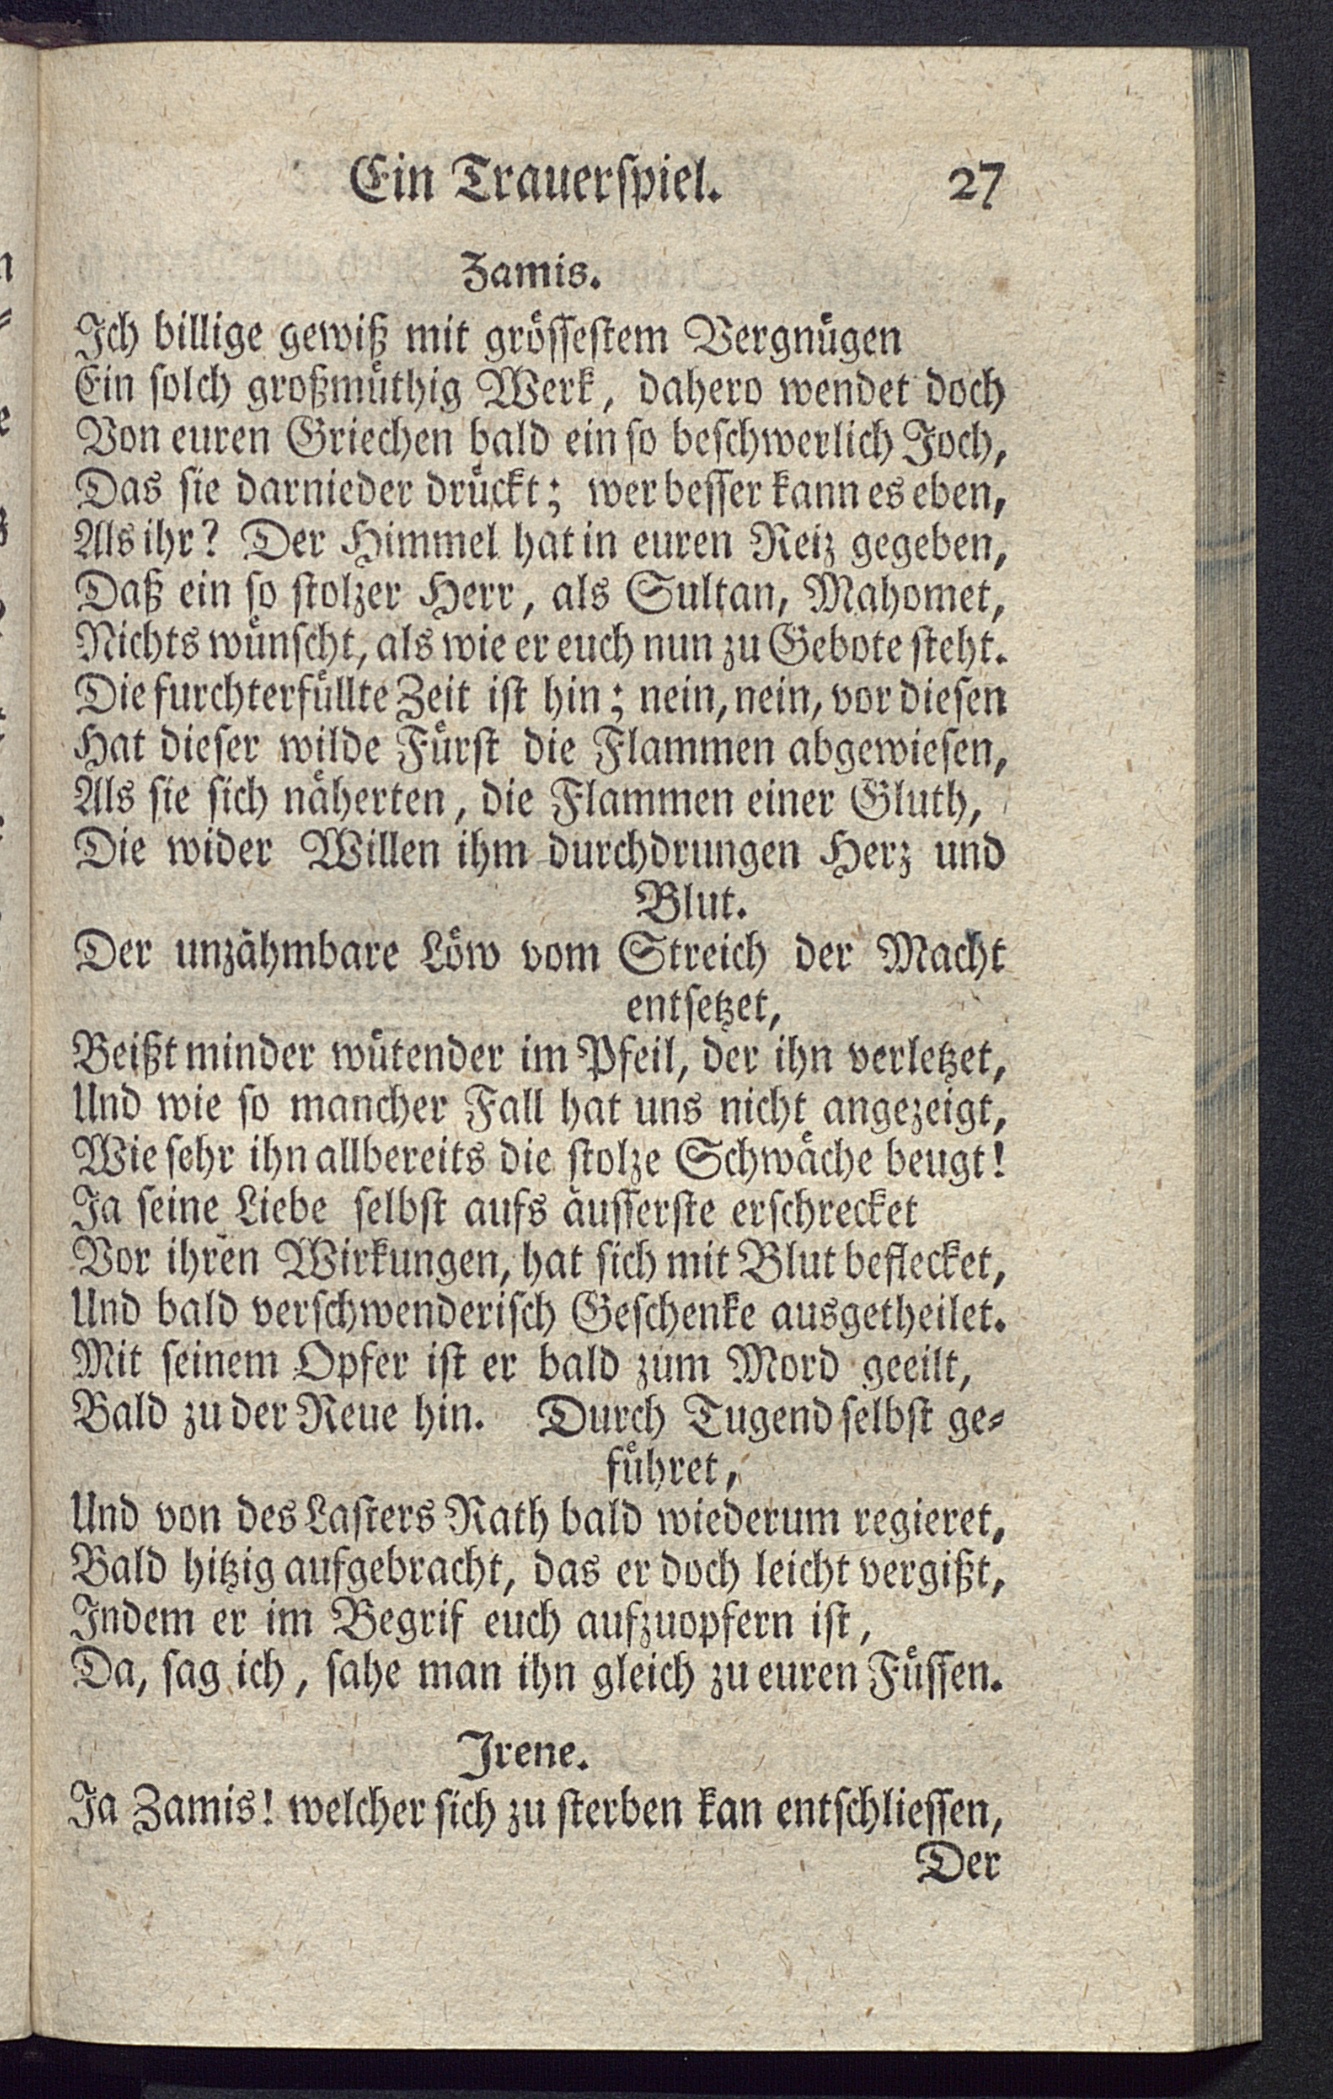 Ein Trauerspiel. 27
Zamis.
Ich billige gewiß mit grössestem Vergnügen
Ein solch großmüthig Werk, dahero wendet doch
Von euren Griechen bald ein so beschwerlich Joch,
Das sie darnieder drückt; wer besser kann es eben,
Als ihr? Der Himmel hat in euren Reiz gegeben,
Daß ein so stolzer Herr, als Sultan, Mahomet,
Nichts wünscht, als wie er euch nun zu Gebote steht.
Die furchterfüllte Zeit ist hin; nein, nein, vor diesen
Hat dieser wilde Fürst die Flammen abgewiesen,
Als sie sich näherten, die Flammen einer Gluth,
Die wider Willen ihm durchdrungen Herz und
Blut.
Der unzähmbare Löw vom Streich der Macht
entsetzet,
Beißt minder wütender im Pfeil, der ihn verletzet,
Und wie so mancher Fall hat uns nicht angezeigt,
Wie sehr ihn allbereits die stolze Schwäche beugt!
Ja seine Liebe selbst aufs äusserste erschrecket
Vor ihren Wirkungen, hat sich mit Blut beflecket,
Und bald verschwenderisch Geschenke ausgetheilet.
Mit seinem Opfer ist er bald zum Mord geeilt,
Bald zu der Reue hin. Durch Tugend selbst ge-
führet,
Und von des Lasters Rath bald wiederum regieret,
Bald hitzig aufgebracht, das er doch leicht vergißt,
Indem er im Begrif euch aufzuopfern ist,
Da, sag ich, sahe man ihn gleich zu euren Füssen.
Irene.
Ja Zamis! welcher sich zu sterben kan entschliessen,
Der